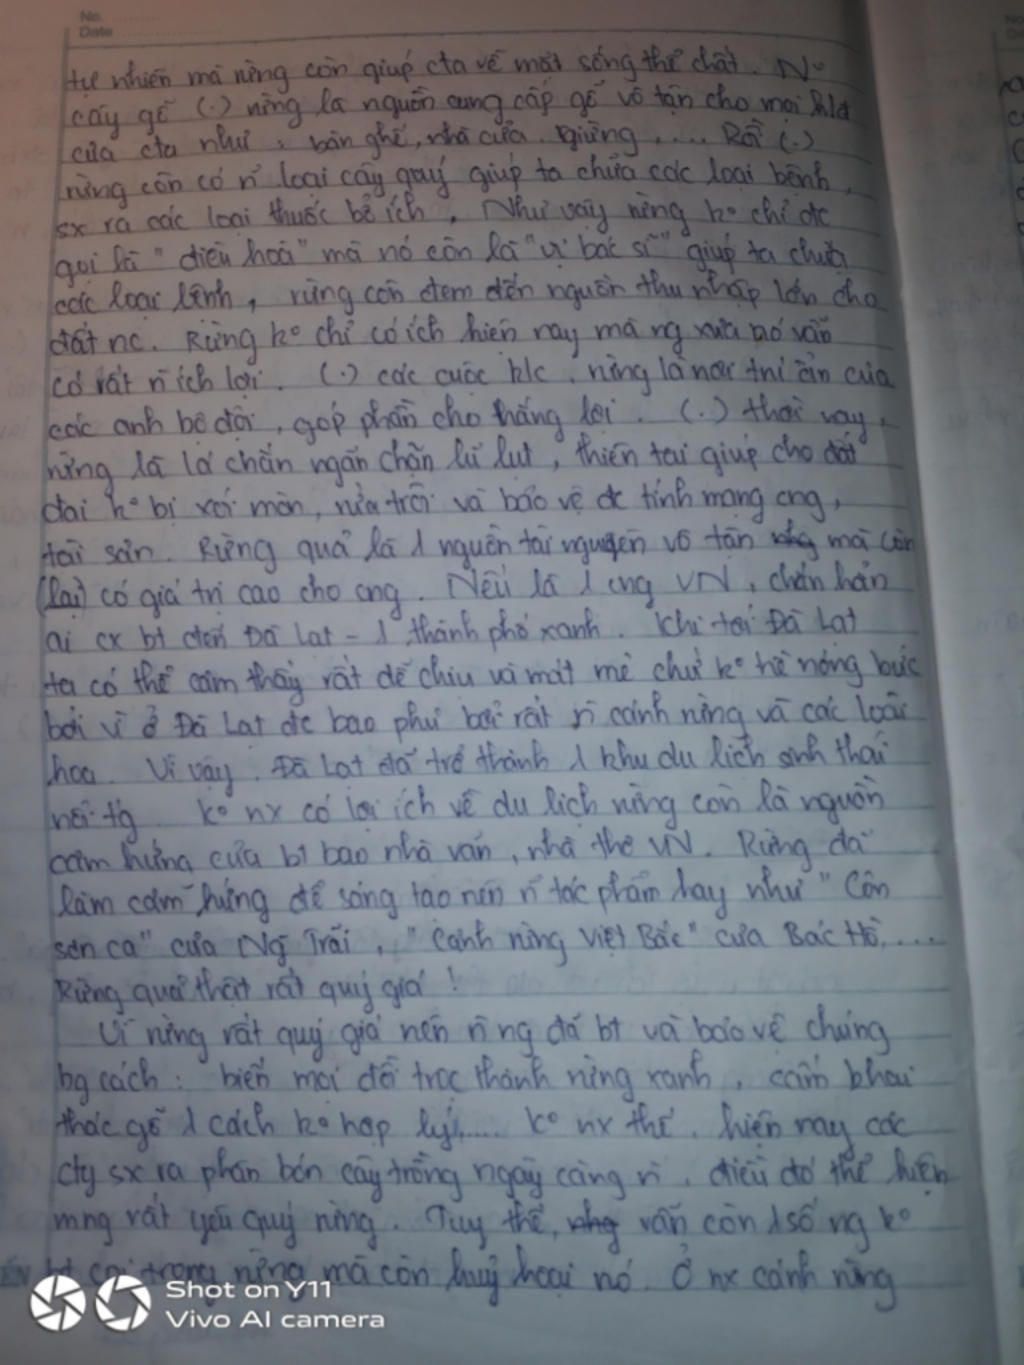 No.
Date
tự nhiên mà rừng còn giúp cta về mặt sống thể chất. N°
cây gỗ (.) rừng là nguồn cung cấp gỗ vô tận cho mọi
của cta như: bàn ghế, nhà cửa, giường, .... Rồi (.)
rừng còn có n̄ loại cây quý giúp ta chữa các loại bệnh,
sx ra các loại thuốc bổ ích, Như vậy rừng k° chỉ đc
gọi là "điều hoà" mà nó còn là "vị bác sĩ" giúp ta chữa
các loại bệnh, rừng còn đem đến nguồn thu nhập lớn cho
đất nc. Rừng k° chỉ có ích hiện nay mà ng xưa nó vẫn
có rất n̄ ích lợi. (.) các cuộc k/c, rừng là nơi trú ẩn của
các anh bộ đội, góp phần cho thắng lợi. (.) thời nay,
rừng là lá chắn ngăn chặn lũ lụt, thiên tai giúp cho đất
đai k° bị xói mòn, rửa trôi và bảo vệ đc tính mạng cng,
tài sản. Rừng quả là 1 nguồn tài nguyên vô tận mà còn
(lại) có giá trị cao cho cng. Nếu là 1 cng VN, chắn hẳn
ai cx bt đến Đà Lạt - 1 thành phố xanh. Khi tới Đà Lạt
ta có thể cảm thấy rất dễ chịu và mát mẻ chứ k° hề nóng bức
bởi vì ở Đà Lạt đc bao phủ bởi rất n̄ cánh rừng và các loài
hoa. Vì vậy, Đà Lạt đã trở thành 1 khu du lịch sinh thái
nổi tg. K° nx có lợi ích về du lịch rừng còn là nguồn
cảm hứng của bt bao nhà văn, nhà thơ VN. Rừng đã
làm cảm hứng để sáng tạo nên n̄ tác phẩm hay như "Côn
sơn ca" của Ng~ Trãi, "Cảnh rừng Việt Bắc" của Bác Hồ, ....
Rừng quả thật rất quý giá!
Vì rừng rất quý giá nên n̄ ng đã bt và bảo vệ chúng
bg cách: biến mọi đồi trọc thành rừng xanh, cấm khai
thác gỗ 1 cách k° hợp lý,.... K° nx thế, hiện nay các
cty sx ra phân bón cây trồng ngày càng n̄, điều đó thể hiện
mng rất yêu quý rừng. Tuy thế, vẫn còn 1 số ng k°
bt coi trọng rừng mà còn huỷ hoại nó. Ở nx cánh rừng
Shot on Y11
Vivo AI camera